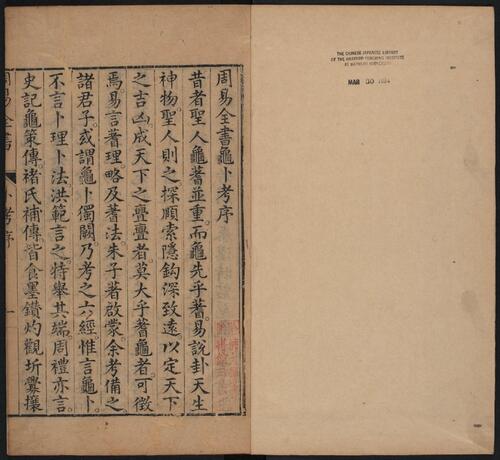 周易全書龜卜考序
昔者聖人龜蓍並重而龜先乎蓍。易說卦天生
神物聖人則之探賾索隱鈎深致遠以定天下
之吉凶。成天下之亹亹者莫大乎蓍龜者。可徵
焉易言蓍理略及蓍法。朱子著啟蒙。余考備之
諸君子。或謂龜卜獨闕。乃考之六經惟言龜卜。
不言卜理卜法。洪範言之特舉其端。周禮亦言。
史記龜策傳。褚氏補傳。皆食墨鑽灼觀坼釁攘
周易全書 卜考序 一
THE CHINESE JAPANESE LIBRARY
OF THE HARVARD YENCHING INSTITUTE
AT HARVARD UNIVERSITY
MAR 30 1934